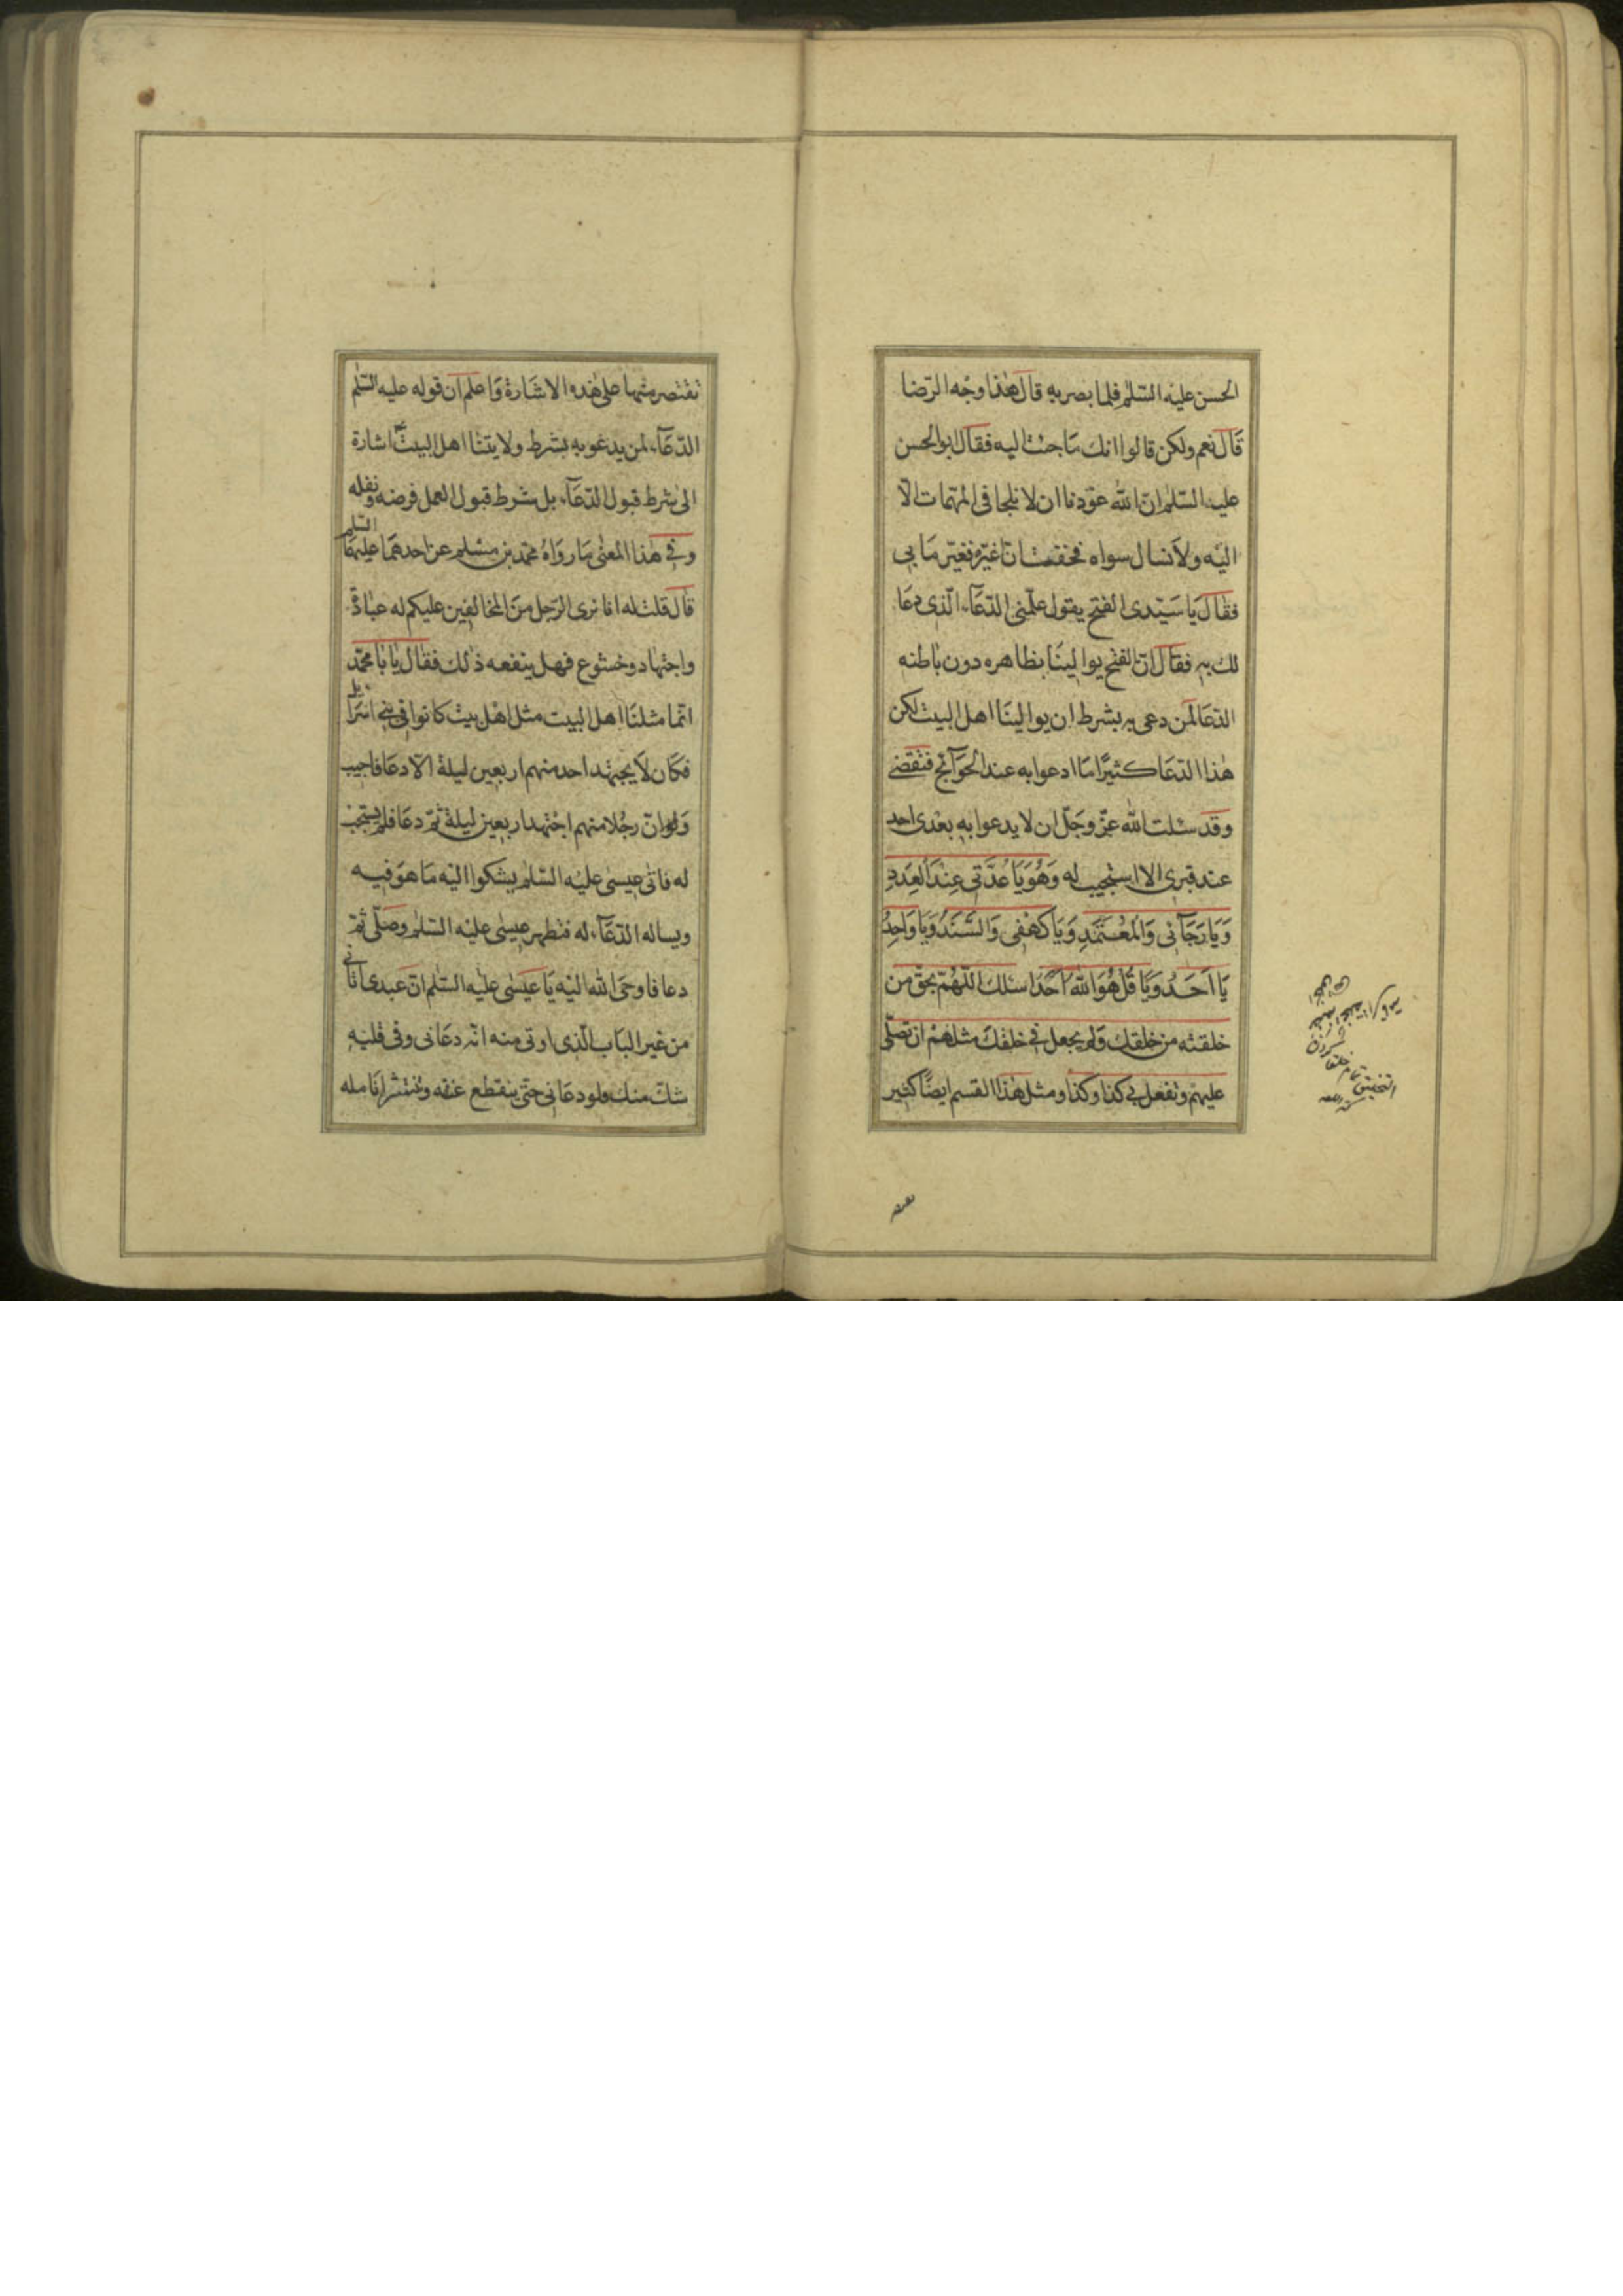 الحسن عليه السّلم فلما بصر به قال هذا وجه الرّضا
قال نعم ولكن قالوا انك ما جئت اليه فقال ابو الحسن
عليه السّلم ان الله عوّدنا ان لا نلجا فى المهمّات الّا
اليه ولا نسال سواه فخفت ان اغيّر فيغيّر ما بى
فقال يا سيّدى الفتح يقول علّمنى الدّعآء الّذى دعا
لك به فقال انّ الفتح يوالينا بظاهره دون باطنه
الدّعا لمن دعى به بشرط ان يوالينا اهل البيت لكن
هذا الدّعا كثيرًا ما ادعوا به عند الحوآئج فتقضى
وقد سئلت الله عزّ وجلّ ان لا يدعوا به بعدى احد
عند قبرى الا استجيب له وَهُوَ يَا عُدَّتى عِنْدَ العِدَدِ
وَيَا رَجَآئى وَالمُعْتَمَدِ وَيَا كَهْفى وَالسَّنَدُ وَيَا وَاحِدُ
يَا اَحَدُ وَيَا قُلْ هُوَ اللهُ اَحَدٌ اسئلك اللّهُمّ بحقّ من
خلقته من خلقك وَلم يجعل فى خلقك مثلهم ان تصلّى
عليهم وتفعل بى كذا وكذا ومثل هذا القسم ايضًا كثير
نقتصر منها على هذه الاشارة وَاعلم ان قوله عليه السّلم
الدّعآء لمن يدعو به بشرط ولايتنا اهل البيت اشارة
الى شرط قبول الدّعآء بل شرط قبول العمل فرضه ونفله
وفى هذا المعنى ما روَاهُ محمّد بن مسلم عن احدهما عليهما السّلم
قال قلت له انا نرى الرّجل من المخالفين عليكم له عبادة
واجتهاد وخشوع فهل ينفعه ذلك فقال يا با محمّد
انّما مثلنا اهل البيت مثل اهل بيت كانوا فى بنى اسرائيل
فكان لا يجتهد احد منهم اربعين ليلة الّا دعا فاجيب
وَانّ رجُلا منهم اجتهد اربعين ليلة ثمّ دعا فلم يستجب
له فاتى عيسى عليه السّلم يشكوا اليه ما هو فيه
ويساله الدّعآء له فتطهر عيسى عليه السّلم وصلّى ثمّ
دعا فاوحى الله اليه يا عيسى عليه السّلم انّ عبدى اتانى
من غير الباب الّذى اوتى منه انّه دعانى وفى قلبه
شك منك فلو دعانى حتى ينقطع عنقه وتنتثر انامله